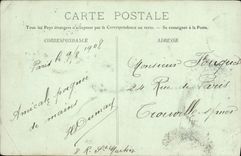 CARTE POSTALE
Tous les Pays étrangers n'acceptent pas la Correspondance au verso. - Se renseigner à la Poste.
CORRESPONDANCE
ADRESSE
Paris 1908
Amicale poignée
de mains
Monsieur
24 Rue de Paris
Trouville s/mer